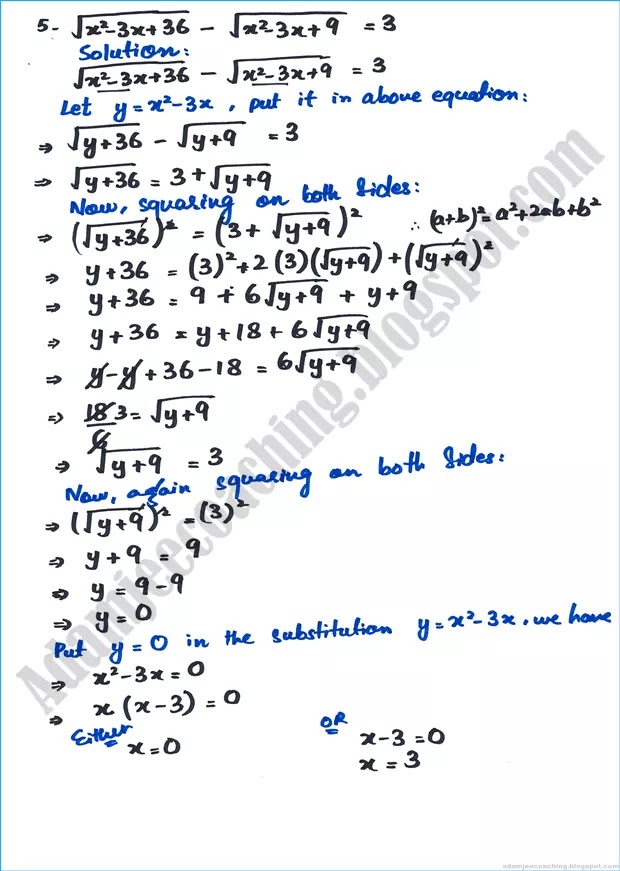 5- √(x²-3x+36) - √(x²-3x+9) = 3
Solution:
√(x²-3x+36) - √(x²-3x+9) = 3
Let y = x²-3x , put it in above equation:
⇒ √(y+36) - √(y+9) = 3
⇒ √(y+36) = 3+√(y+9)
Now, squaring on both sides:
⇒ (√(y+36))² = (3+√(y+9))² ∴ (a+b)²=a²+2ab+b²
⇒ y+36 = (3)²+2(3)(√(y+9))+(√(y+9))²
⇒ y+36 = 9 + 6√(y+9) + y+9
⇒ y+36 = y+18+6√(y+9)
⇒ y-y+36-18 = 6√(y+9)
⇒ 18/6 3 = √(y+9)
⇒ √(y+9) = 3
Now, again squaring on both sides:
⇒ (√(y+9))² = (3)²
⇒ y+9 = 9
⇒ y = 9-9
⇒ y = 0
Put y=0 in the substitution y=x²-3x, we have
⇒ x²-3x=0
⇒ x(x-3)=0
Either OR
x=0 x-3=0
x=3
Adamjeecoaching.blogspot.com
adamjeecoaching.blogspot.com